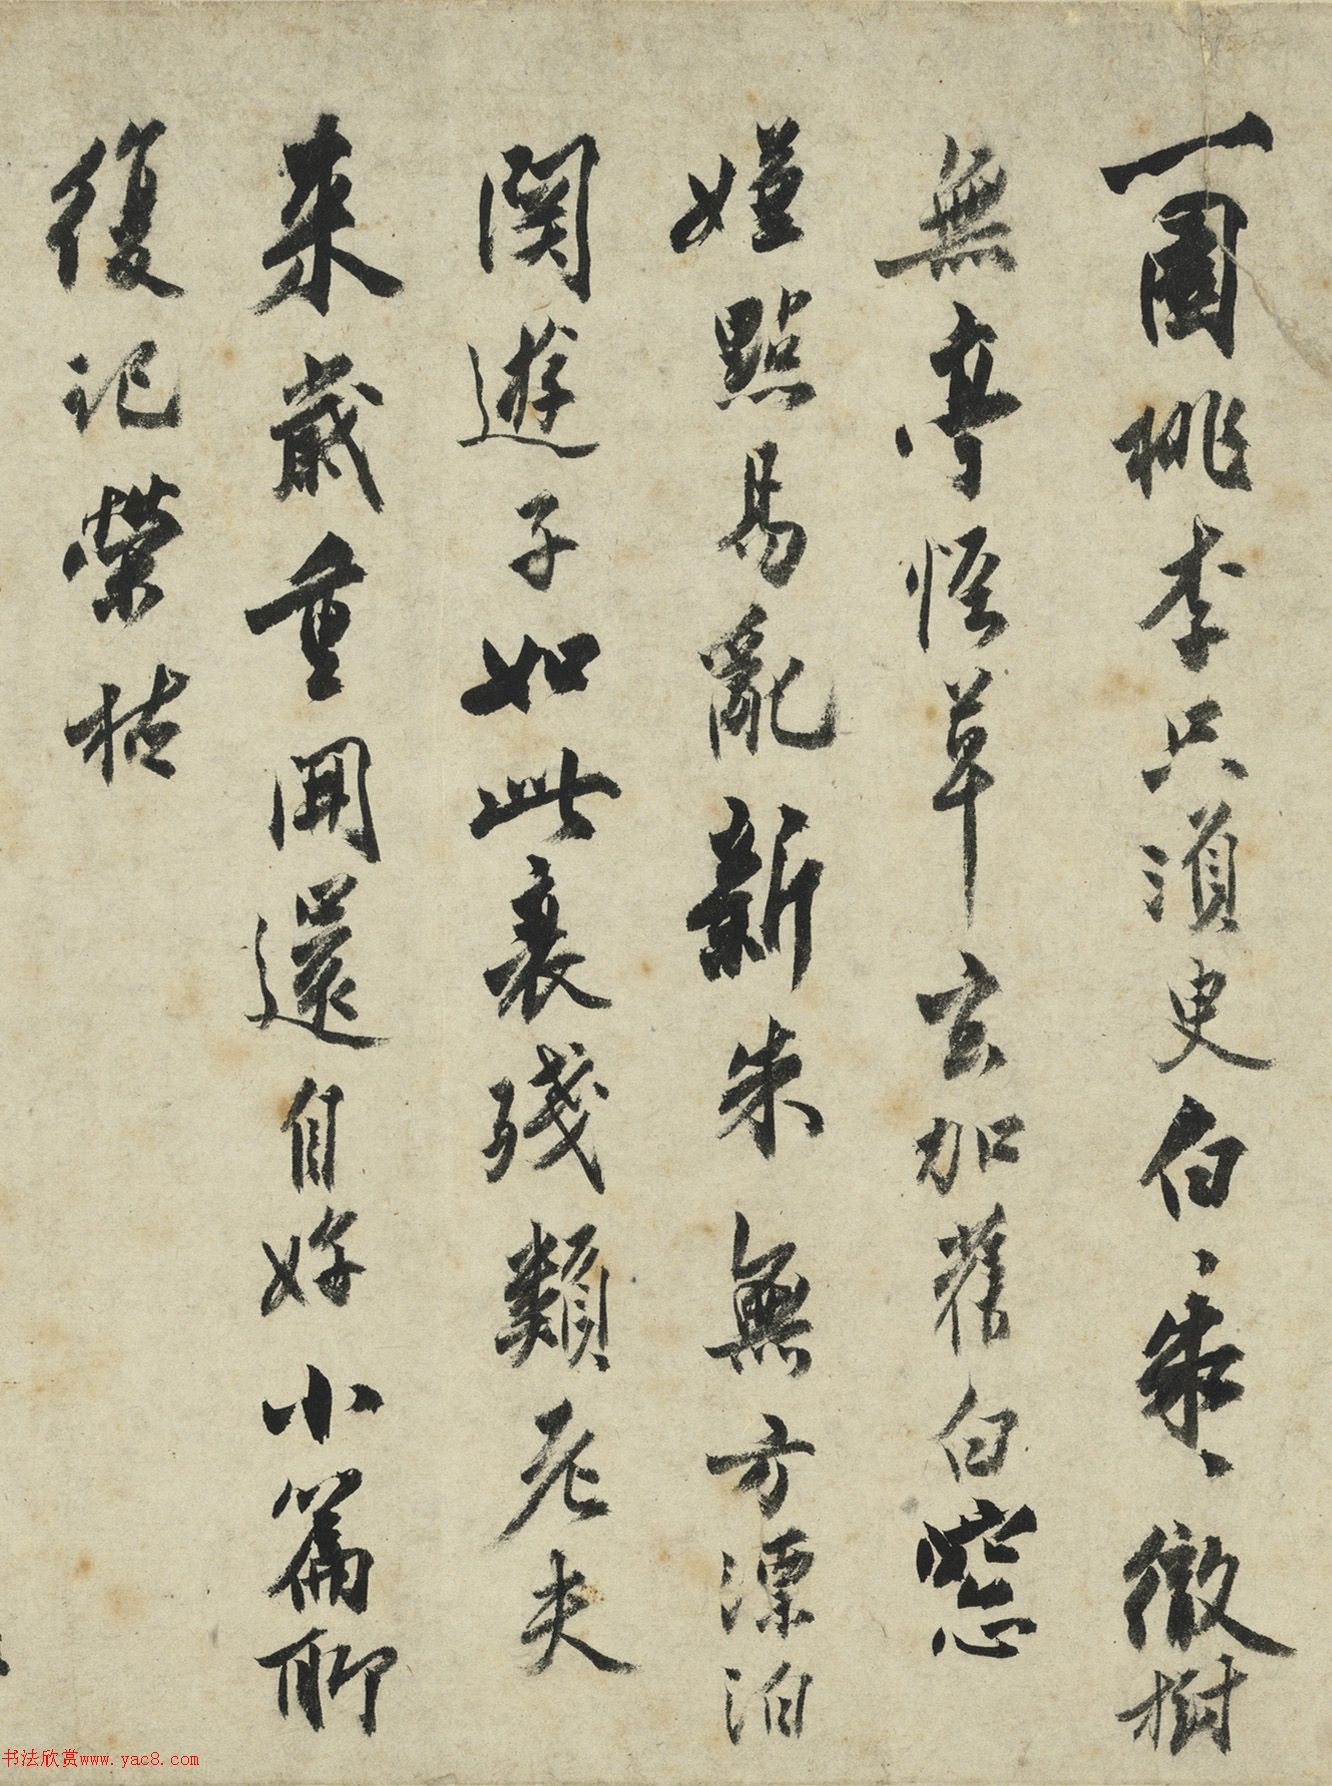 一園桃李只須臾白、朱、徹樹
無亭怪草玄加舊白窓
嫌點易亂新朱無方漂泊
関遊子如此衰殘類老夫
来歲重開還自好小篇聊
復記榮枯
书法欣赏www.yac8.com